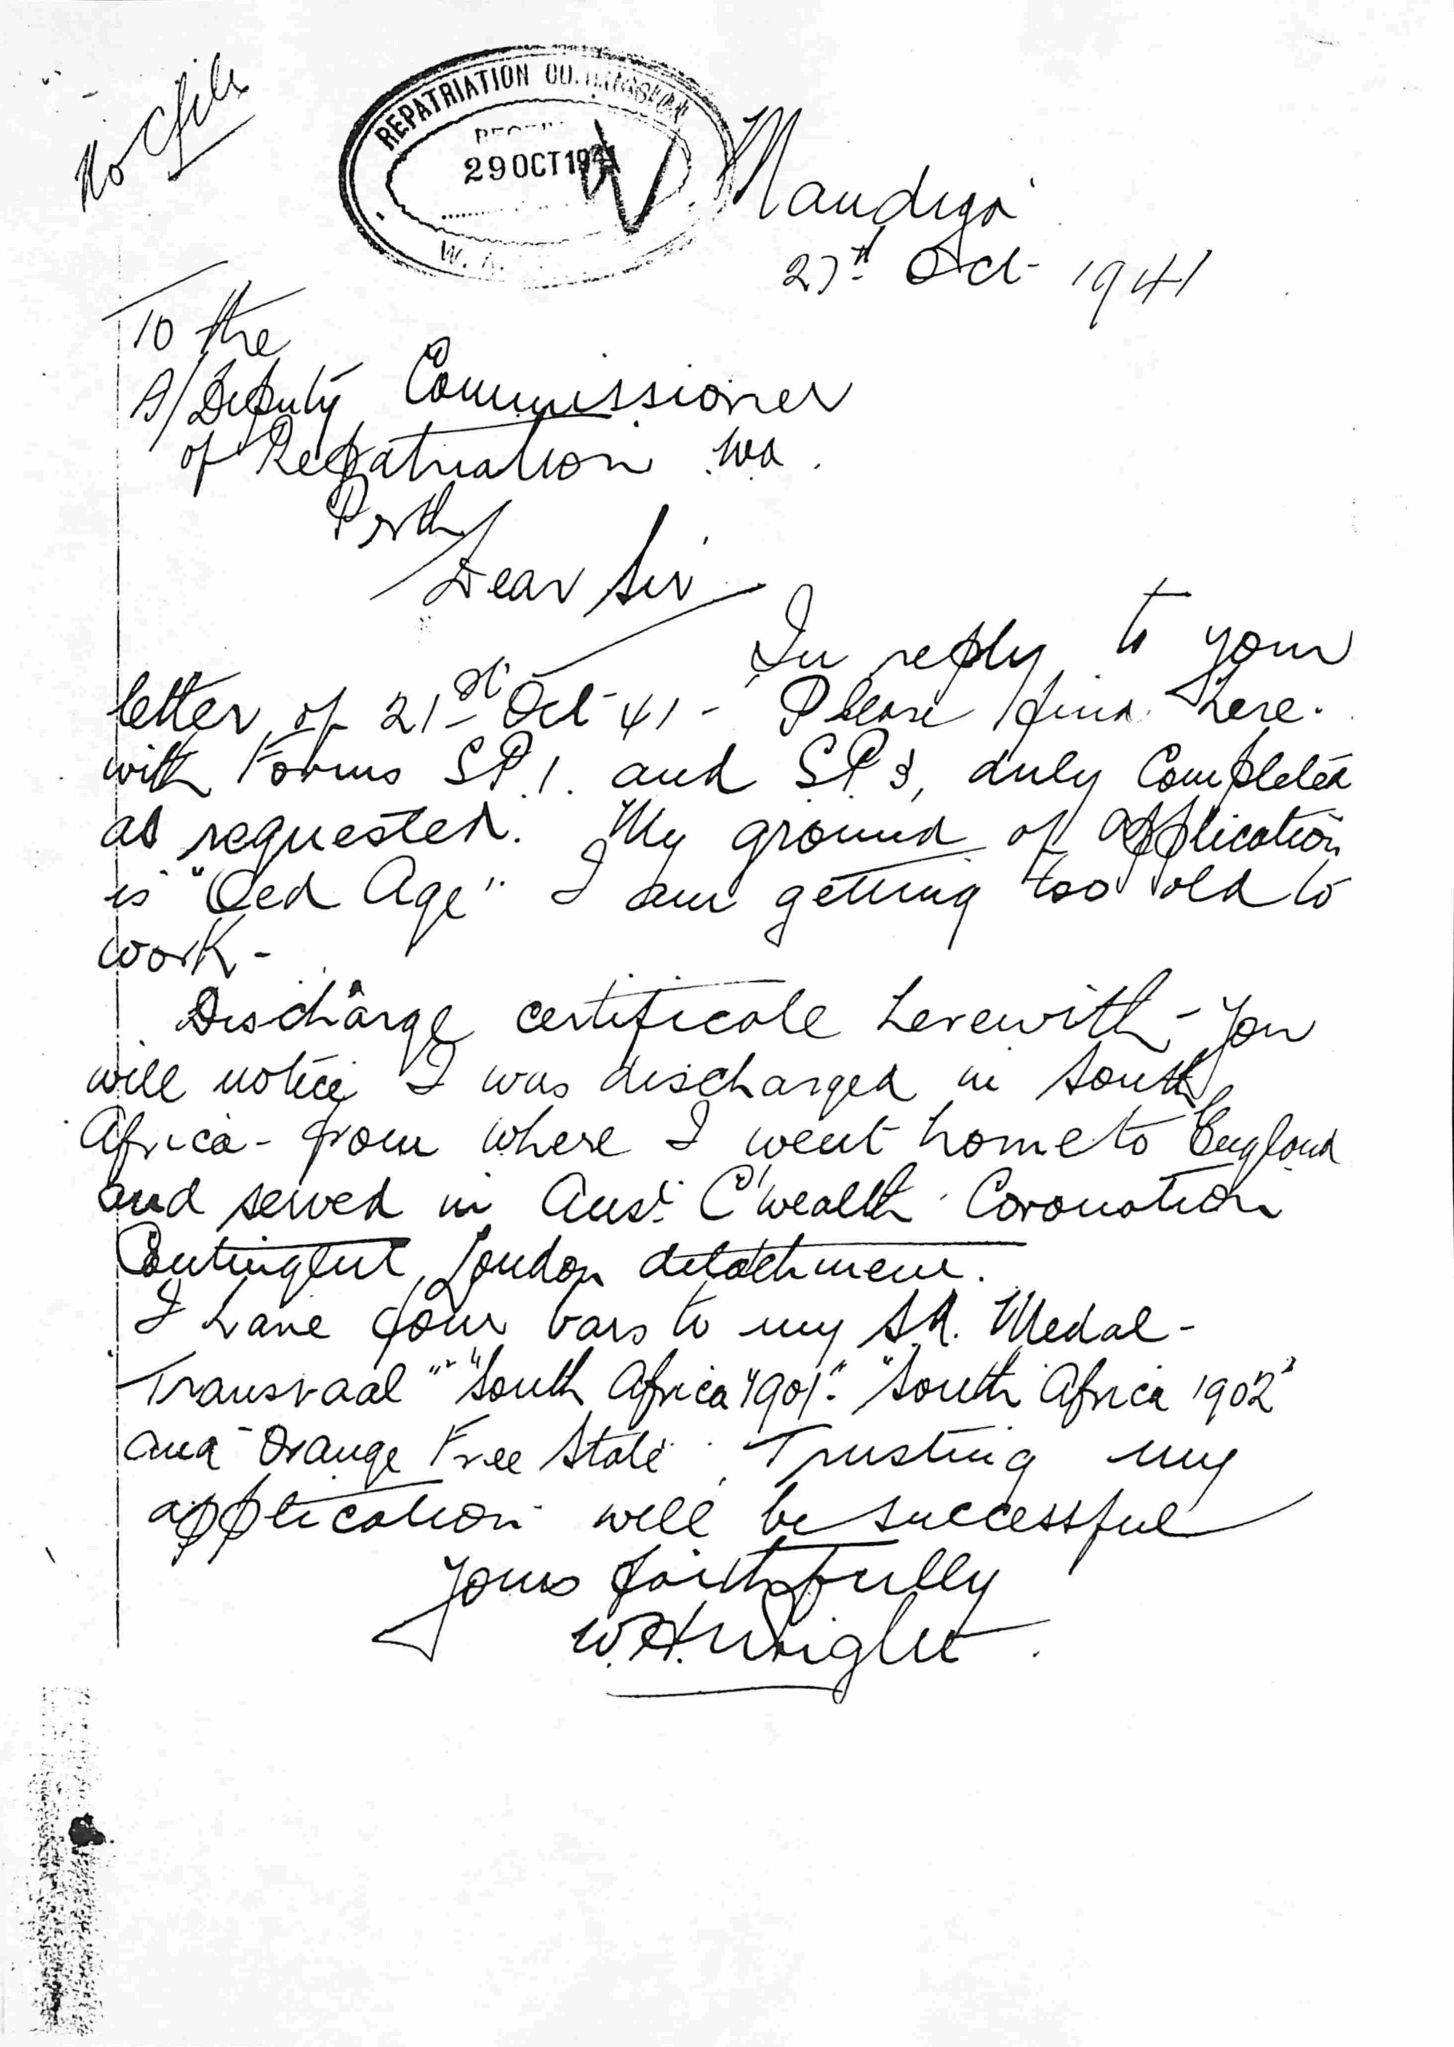 No file
REPATRIATION COMMISSION
29 OCT 1941
W. A.
Mandiga
27th Oct 1941
To the
A/Deputy Commissioner
of Repatriation WA.
Perth
Dear Sir
In reply to your
letter of 21st Oct 41 - Please find here-
with Forms SP.1. and S.P.3, duly completed
as requested. My ground of application
is "Old Age". I am getting too old to
work -
Discharge certificate herewith - you
will notice I was discharged in South
Africa - from where I went home to England
and served in Aust. C'wealth Coronation
Contingent, London detachment.
I have four bars to my S.A. Medal -
Transvaal" "South Africa 1901". "South Africa 1902"
and "Orange Free State". Trusting my
application will be successful
Yours faithfully
W.H. Wright.